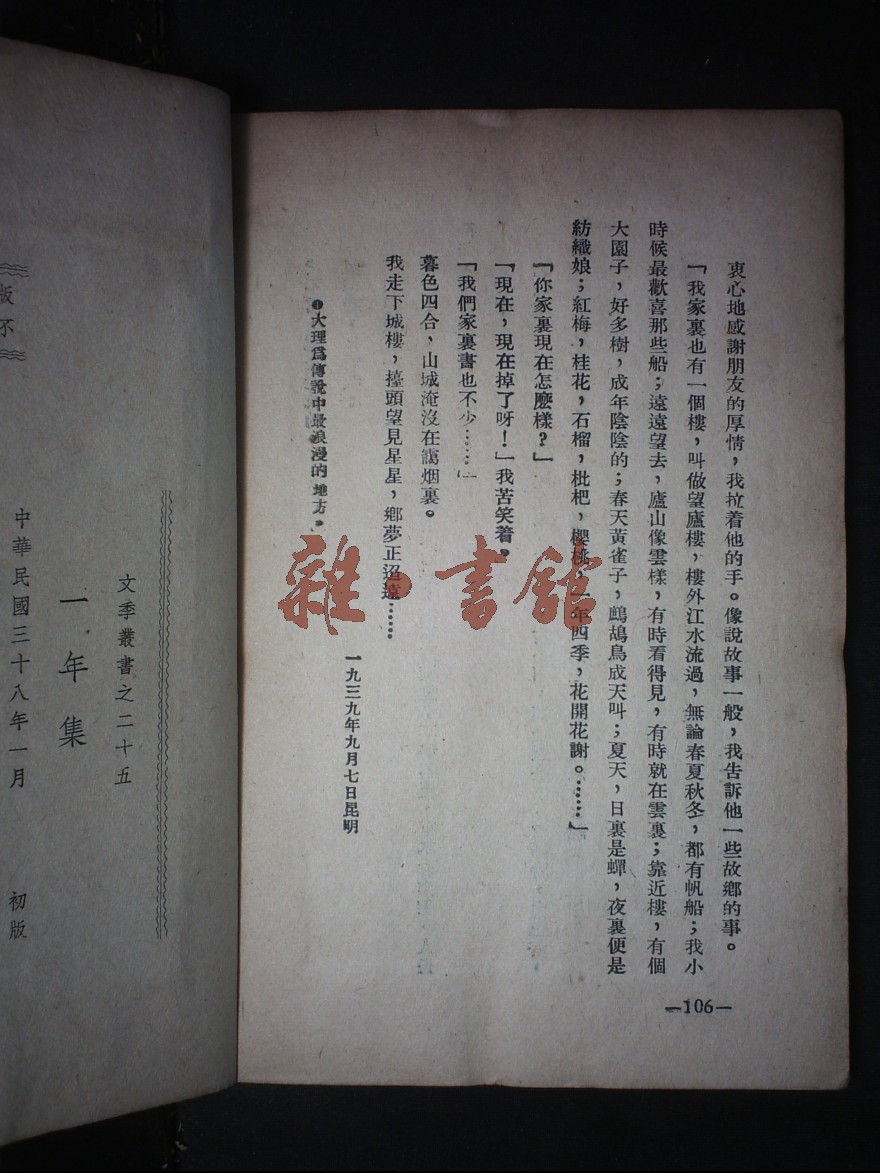 衷心地感謝朋友的厚情，我拉着他的手。像說故事一般，我告訴他一些故鄉的事。
「我家裏也有一個樓，叫做望廬樓，樓外江水流過，無論春夏秋冬，都有帆船；我小
時候最歡喜那些船；遠遠望去，廬山像雲樣，有時看得見，有時就在雲裏；靠近樓，有個
大園子，好多樹，成年陰陰的；春天黃雀子，鷓鴣鳥成天叫；夏天，日裏是蟬，夜裏便是
紡織娘；紅梅，桂花，石榴，枇杷，櫻桃，一年四季，花開花謝。……」
「你家裏現在怎麽樣？」
「現在，現在掉了呀！」我苦笑着，
「我們家裏書也不少……」
暮色四合，山城淹沒在靄烟裏。
我走下城樓，擡頭望見星星，鄉夢正迢遠……
一九三九年九月七日昆明
❶大理爲傳說中最浪漫的地方。
—106—
雜·書館
文季叢書之二十五
一年集
中華民國三十八年一月 初版
版不